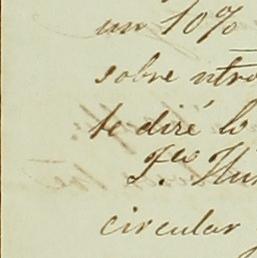 un 10%
sobre ntro
te diré lo
circular